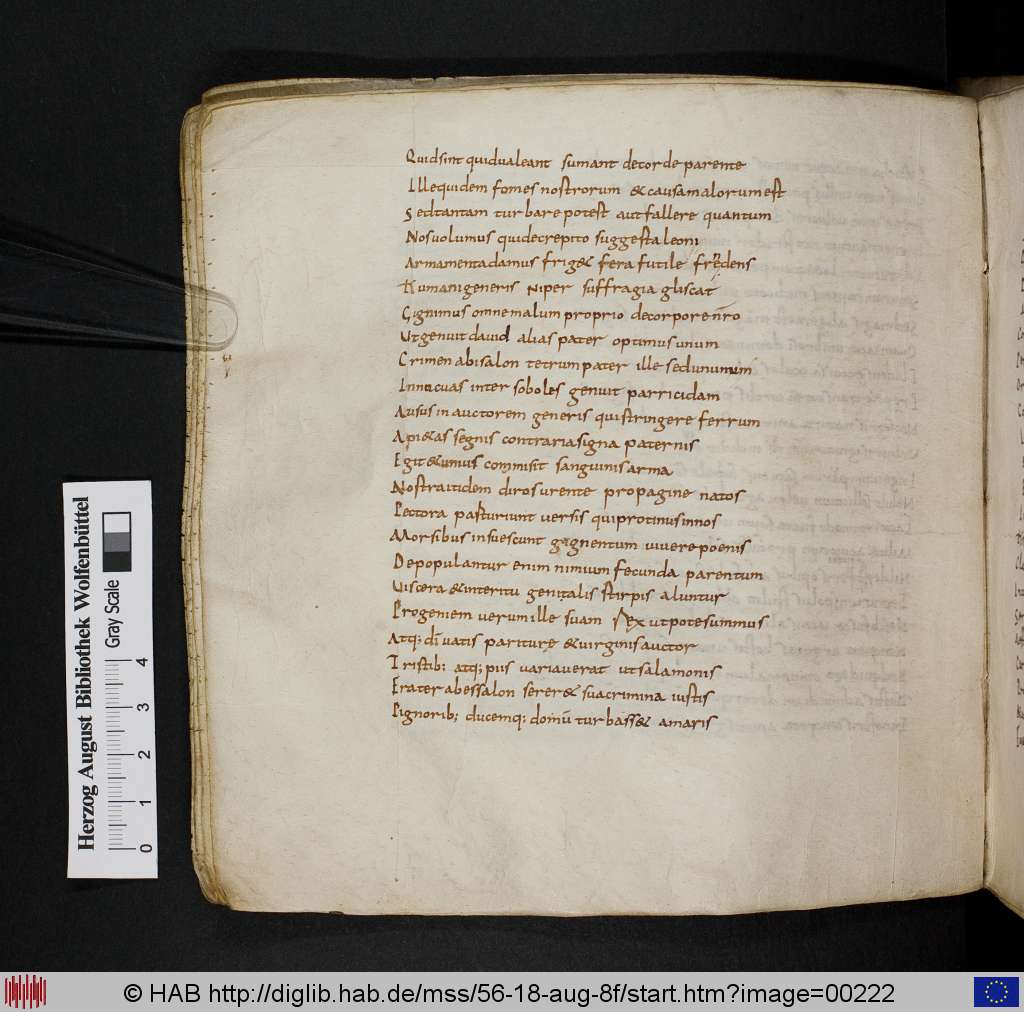 Quid sint quid ualeant sumant de corde parente
Ille quidem fomes nostrorum & causa malorum est
Sed tantam turbare potest aut fallere quantum
Nos uolumus qui decrepito suggesta leoni
Armamenta damus frig& fera futile frendens
Humani generis niper suffragia gliscat
Gignimus omne malum proprio de corpore nro
Ut genuit dauid alias pater optimus unum
Crimen abisalon tetrum pater ille sed unum
Innocuas inter soboles genuit parricidam
Ausus in auctorem generis qui stringere ferrum
A pi&as segnis contraria signa paternis
Egit & unius commisit sanguinis arma
Nostra itidem diros urente propagine natos
Pectora pasturiunt uersis qui protinus in nos
Morsibus insuescunt gignentum uiuere poenis
Depopulantur enim nimium fecunda parentum
Uiscera & interitu genitalis stirpis aluntur
Progeniem uerum ille suam rex utpote summus
Atq; diuatis pariture & uirginis auctor
Tristib; atq; piis uariauerat ut salamonis
Frater abessalon serer& sua crimina iustis
Pignorib; ducemq; domū turbass& amaris
Herzog August Bibliothek Wolfenbüttel
Gray Scale
0 1 2 3 4
© HAB http://diglib.hab.de/mss/56-18-aug-8f/start.htm?image=00222